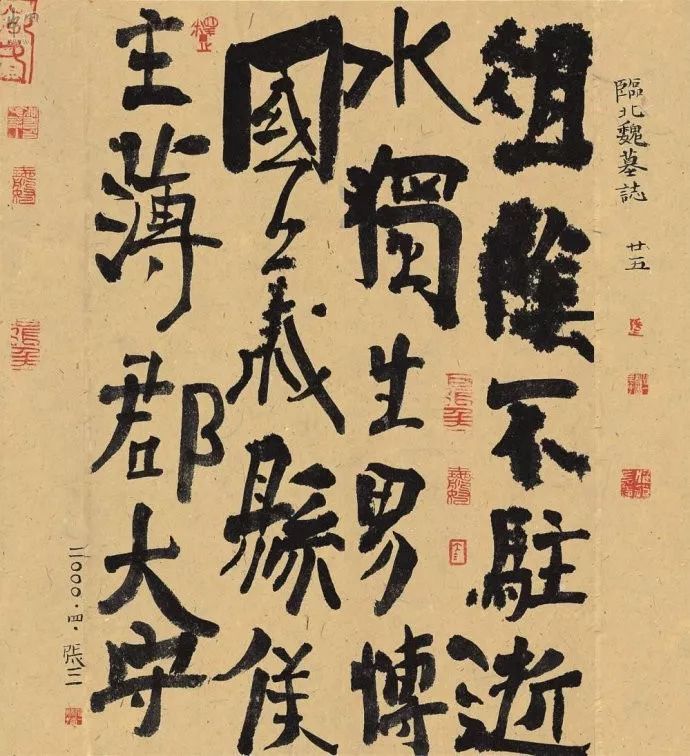 臨北魏墓誌 廿五
徂陰不駐逝
水獨生男愽
國公義縣侯
主薄郡大守
二〇〇〇.四.